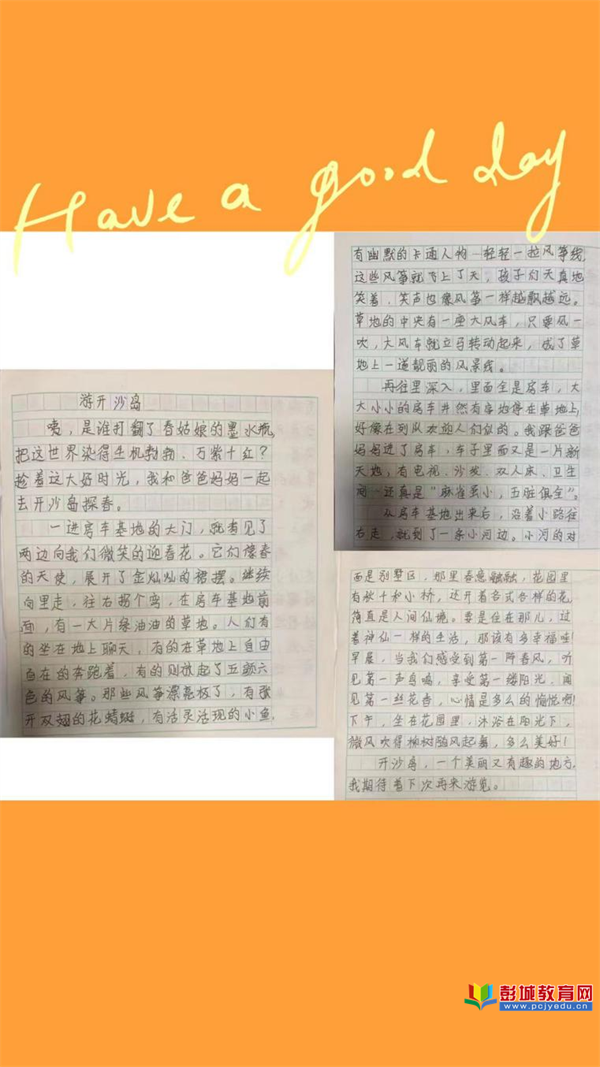 Have a good day
游开沙岛
咦，是谁打翻了春姑娘的墨水瓶，
把这世界染得生机勃勃、万紫千红？
趁着这大好时光，我和爸爸妈妈一起
去开沙岛探春。
一进房车基地的大门，就看见了
两边向我们微笑的迎春花。它们像春
的天使，展开了金灿灿的裙摆。继续
向里走，往右拐个弯，在房车基地前
面，有一大片绿油油的草地。人们有
的坐在地上聊天，有的在草地上自由
自在的奔跑着，有的则放起了五颜六
色的风筝。那些风筝漂亮极了，有张
开双翅的花蝴蝶，有活灵活现的小鱼，
有幽默的卡通人物…轻轻一拉风筝线，
这些风筝就飞上了天，孩子们天真地
笑着，笑声也像风筝一样越飘越远。
草地的中央有一座大风车，只要风一
吹，大风车就立马转动起来，成了草
地上一道靓丽的风景线。
再往里深入，里面全是房车，大
大小小的房车井然有序地停在草地上，
好像在列队欢迎人们似的。我跟爸爸
妈妈进了房车，车子里面又是一片新
天地，有电视、沙发、双人床、卫生
间…还真是“麻雀虽小，五脏俱全”。
从房车基地出来后，沿着小路往
右走，就到了一条小河边。小河的对
面是别墅区，那里春意融融，花园里
有秋千和小桥，还开着各式各样的花，
简直是人间仙境。要是住在那儿，过
着神仙一样的生活，那该有多幸福哇！
早晨，当我们感受到第一阵春风，听
见第一声鸟鸣，享受第一缕阳光，闻
见第一丝花香，心情是多么的愉悦啊！
下午，坐在花园里，沐浴在阳光下，
微风吹得柳树随风起舞，多么美好！
开沙岛，一个美丽又有趣的地方，
我期待着下次再来游览。
彭城教育网
www.pcjyedu.cn